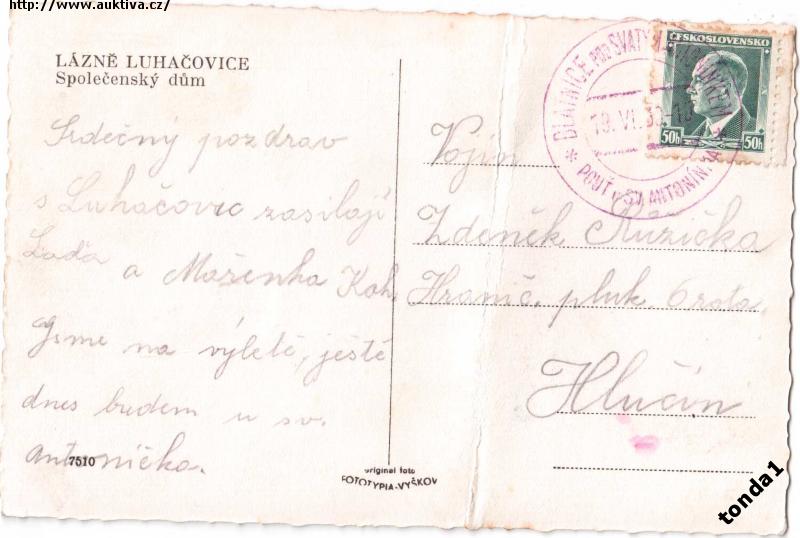 http://www.auktiva.cz/
LÁZNĚ LUHAČOVICE
Společenský dům
Srdečný pozdrav
s Luhačovic zasilají
Laďa a Mařenka Koh.
Jsme na výletě, ještě
dnes budem u sv.
Antonička.
7510
original foto
FOTOTYPIA-VYŠKOV
ČESKOSLOVENSKO
50h 50h
BLATNICE POD SVATÝM ANTONÍNKEM
POUŤ SV. ANTONÍN
Vojín
Zdeněk Růžička
Hranič. pluk. 6 rota.
Hlučín
tonda1